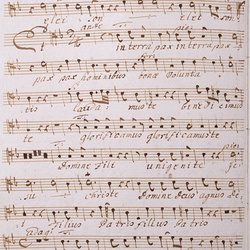 lei son elei son
ante pia:
in terra pax in terra pax
pax pax hominibus bona Volunta
tis laudamus te benedicimus
te glorificamus glorificamus te
pia:
Domine Fili unigenite Je
su Christe Domine Deus agnus De
i Filius Patris Filius Patris
adag: